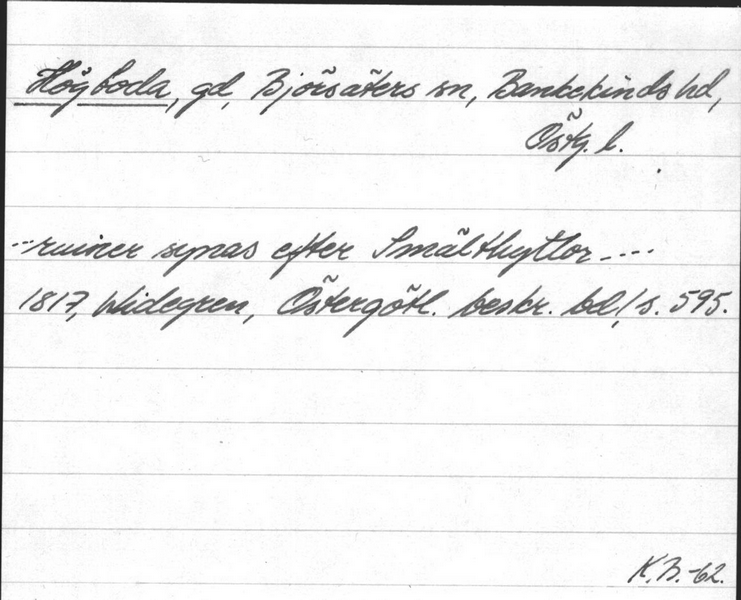 Högboda, gd, Björsäters sn, Bankekinds hd,
Östg. l.
--ruiner synas efter Smälthyttor----
1817, Widegren, Östergötl. beskr. bd, 1 s. 595.
K.B.-62.